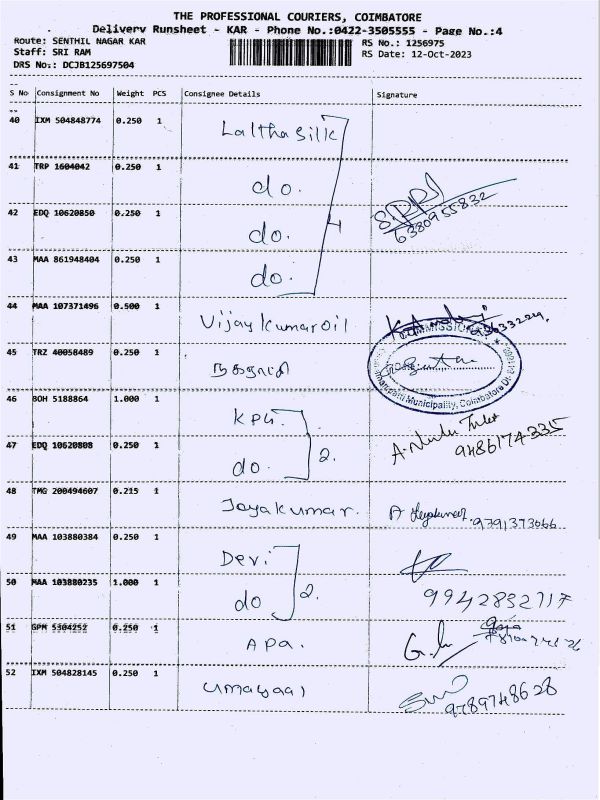 THE PROFESSIONAL COURIERS, COIMBATORE
Delivery Runsheet - KAR - Phone No.:0422-3505555 - Page No.:4
Route: SENTHIL NAGAR KAR
RS No.: 1256975
Staff: SRI RAM
RS Date: 12-Oct-2023
DRS No.: DCJB125697504
S No Consignment No Weight PCS Consignee Details Signature
40 IXM 504848774 0.250 1 Laltha Silk
41 TRP 1604042 0.250 1 do.
42 EDQ 10620850 0.250 1 do. 4
6380955832
43 MAA 861948404 0.250 1 do.
44 MAA 107371496 0.500 1 Vijay Kumar oil
COMMISSIONER
45 TRZ 40058489 0.250 1 நகராட்சி
Municipality, Coimbatore Dt.
46 BOH 5188864 1.000 1 KPH.
47 EDQ 10620808 0.250 1 do. 2.
9486174335
48 TMG 200494607 0.215 1 Jayakumar. A Jeyakumar 9791373066
49 MAA 103880384 0.250 1 Devi
50 MAA 103880235 1.000 1 do 2. 9942832717
51 GPM 5304252 0.250 1 APA.
52 IXM 504828145 0.250 1 umayaal
9789748628